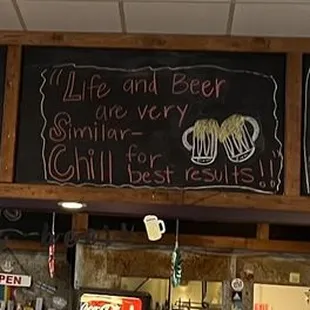 "Life and Beer
are very
Similar-
Chill for
best results!!
OPEN